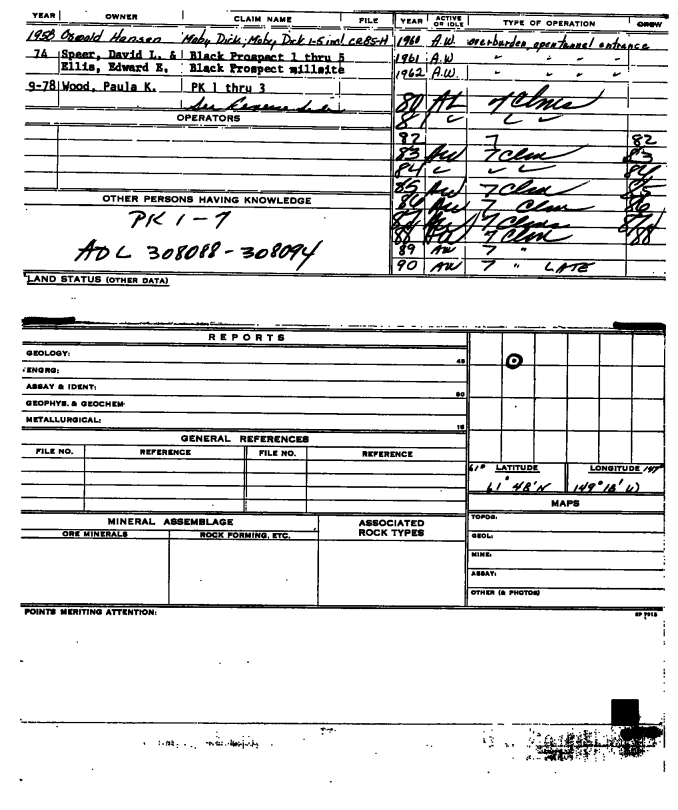 YEAR OWNER CLAIM NAME FILE YEAR ACTIVE OR IDLE TYPE OF OPERATION CREW
1958 Oswald Hansen Moby Dick; Moby Dick 1-5 incl CR85-H 1960 A.W. overburden, open tunnel entrance
74 Speer, David L. & Black Prospect 1 thru 5 1961 A.W " " "
Ellis, Edward E. Black Prospect millsite 1962 A.W. " " "
9-78 Wood, Paula K. PK 1 thru 3
See Reverse Side 80 AL 7 Clms
OPERATORS 81 " " "
82 7 82
83 AW 7 Clm 83
84 " " " 84
85 AW 7 Clm 85
OTHER PERSONS HAVING KNOWLEDGE 86 AW 7 Clm 86
PK 1-7 87 AW 7 Clms 87
88 7 Clm 88
ADL 308088-308094 89 AW 7 "
90 AW 7 " LATE
LAND STATUS (OTHER DATA)
REPORTS
GEOLOGY: 45
ENGRG:
ASSAY & IDENT: 30
GEOPHYS. & GEOCHEM
METALLURGICAL: 15
GENERAL REFERENCES
FILE NO. REFERENCE FILE NO. REFERENCE
61° LATITUDE LONGITUDE 149°
61° 48' N 149° 18' W
MAPS
MINERAL ASSEMBLAGE ASSOCIATED ROCK TYPES TOPOG:
ORE MINERALS ROCK FORMING, ETC. GEOL:
MINE:
ASSAY:
OTHER (& PHOTOS)
POINTS MERITING ATTENTION: